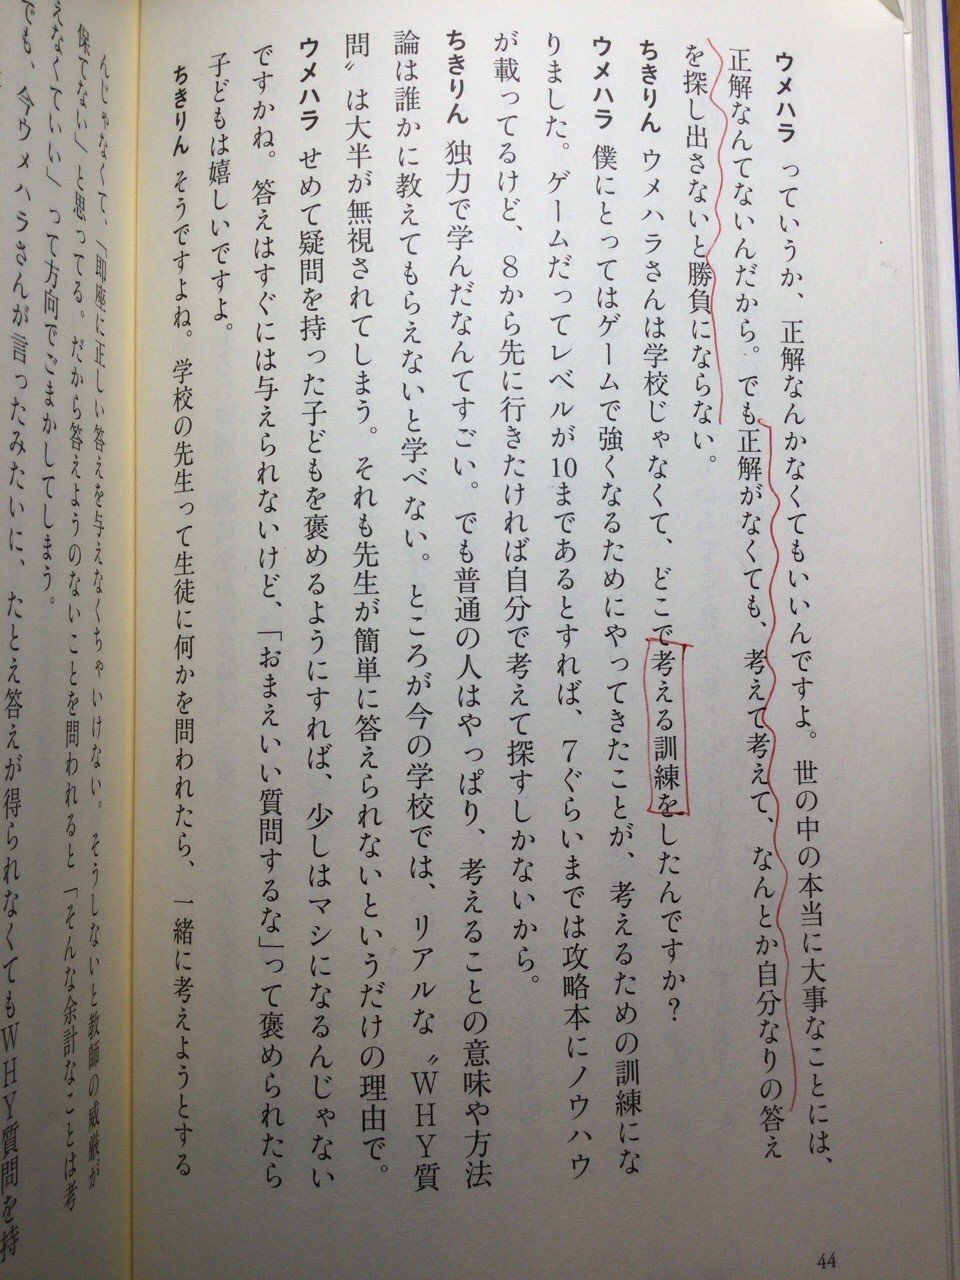 ウメハラ　っていうか、正解なんかなくてもいいんですよ。世の中の本当に大事なことには、
正解なんてないんだから。でも正解がなくても、考えて考えて、なんとか自分なりの答え
を探し出さないと勝負にならない。
ちきりん　ウメハラさんは学校じゃなくて、どこで考える訓練をしたんですか？
ウメハラ　僕にとってはゲームで強くなるためにやってきたことが、考えるための訓練にな
りました。ゲームだってレベルが10まであるとすれば、7ぐらいまでは攻略本にノウハウ
が載ってるけど、8から先に行きたければ自分で考えて探すしかないから。
ちきりん　独力で学んだなんてすごい。でも普通の人はやっぱり、考えることの意味や方法
論は誰かに教えてもらえないと学べない。ところが今の学校では、リアルな〝WHY質
問〟は大半が無視されてしまう。それも先生が簡単に答えられないというだけの理由で。
ウメハラ　せめて疑問を持った子どもを褒めるようにすれば、少しはマシになるんじゃない
ですかね。答えはすぐには与えられないけど、「おまえいい質問するな」って褒められたら
子どもは嬉しいですよ。
ちきりん　そうですよね。学校の先生って生徒に何かを問われたら、一緒に考えようとする
44
んじゃなくて、「即座に正しい答えを与えなくちゃいけない。そうしないと教師の威厳が
保てない」と思ってる。だから答えようのないことを問われると「そんな余計なことは考
えなくていい」って方向でごまかしてしまう。
でも、今ウメハラさんが言ったみたいに、たとえ答えが得られなくてもWHY質問を持